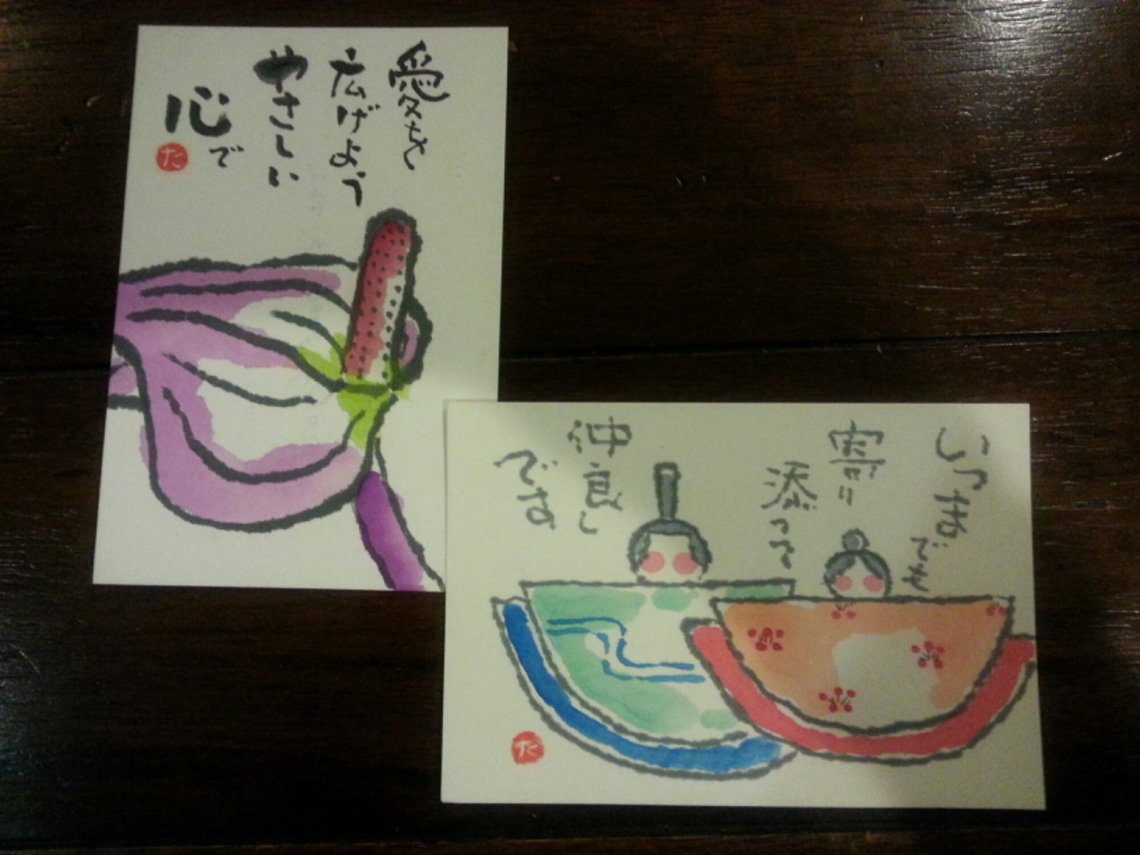 愛を
広げよう
やさしい
心で
た
いつまでも
寄り
添って
仲良し
でね
た